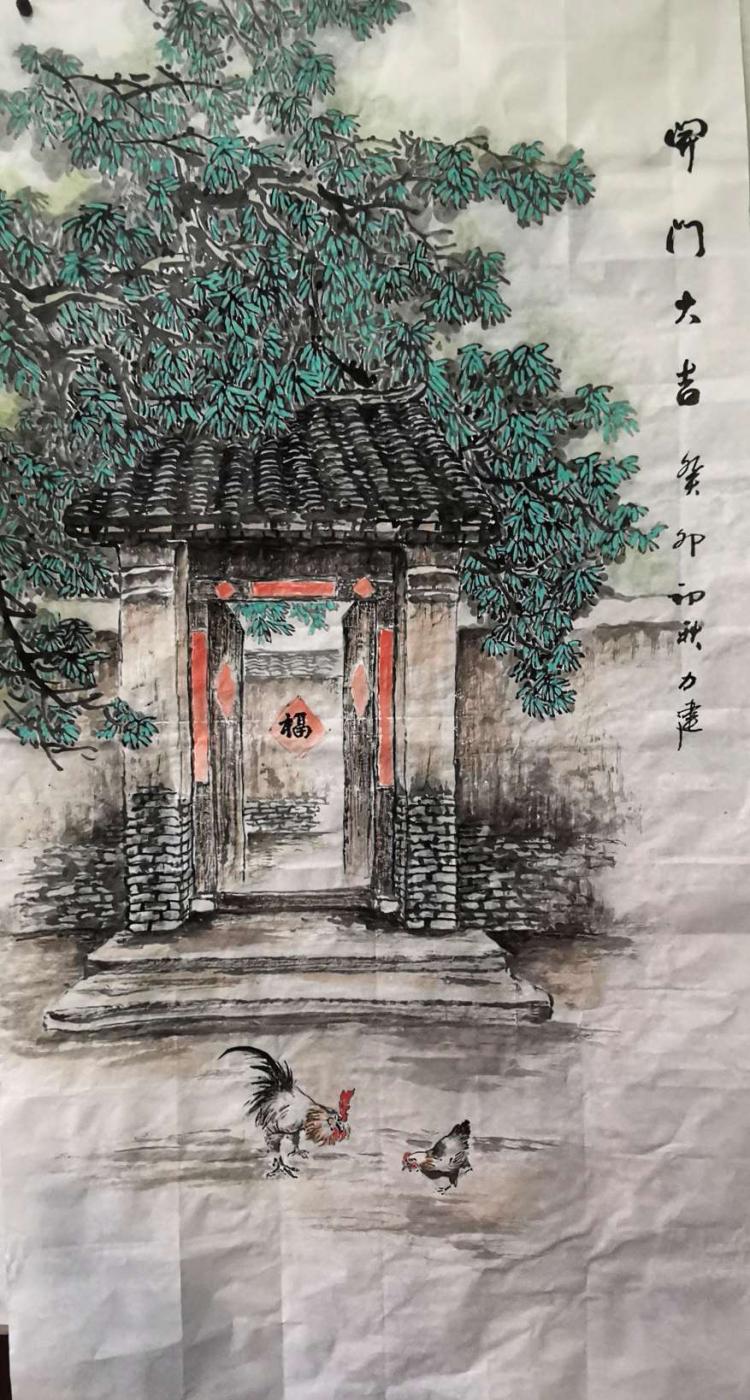 開門大吉 癸卯初秋 力建
福